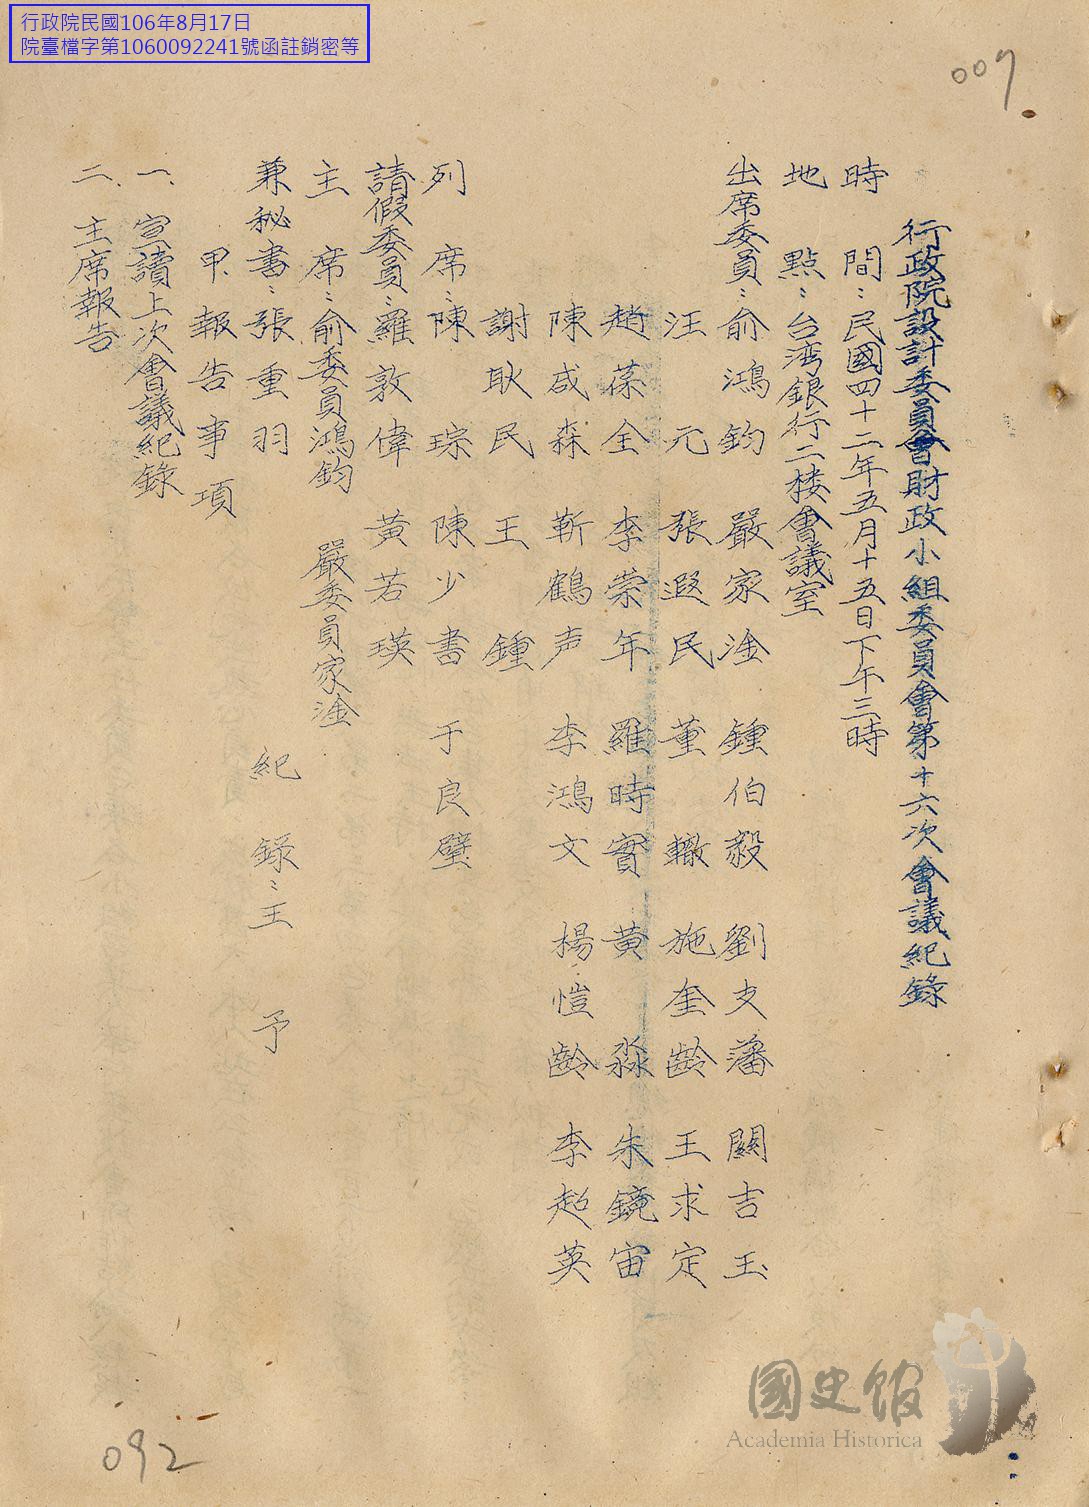 行政院民國106年8月17日
院臺檔字第1060092241號函註銷密等
007
行政院設計委員會財政小組委員會第十六次會議紀錄
時間：民國四十二年五月十五日下午三時
地點：台湾銀行二楼會議室
出席委員：俞鴻鈞 嚴家淦 鍾伯毅 劉支藩 闕吉玉
汪元 張遐民 董轍 施奎齡 王求定
趙葆全 李崇年 羅時實 黃淼 朱鏡宙
陳咸森 靳鶴声 李鴻文 楊愷齡 李超英
謝耿民 王鍾
列席：陳琮 陳少書 于良璧
請假委員：羅敦偉 黃若瑛
主席：俞委員鴻鈞 嚴委員家淦
兼秘書：張重羽 紀錄：王予
甲、報告事項
一、宣讀上次會議紀錄
二、主席報告
國史館
Academia Historica
092